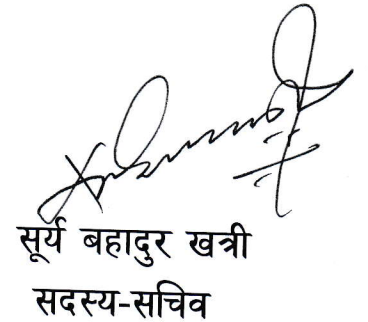 सूर्य बहादुर खत्री
सदस्य-सचिव